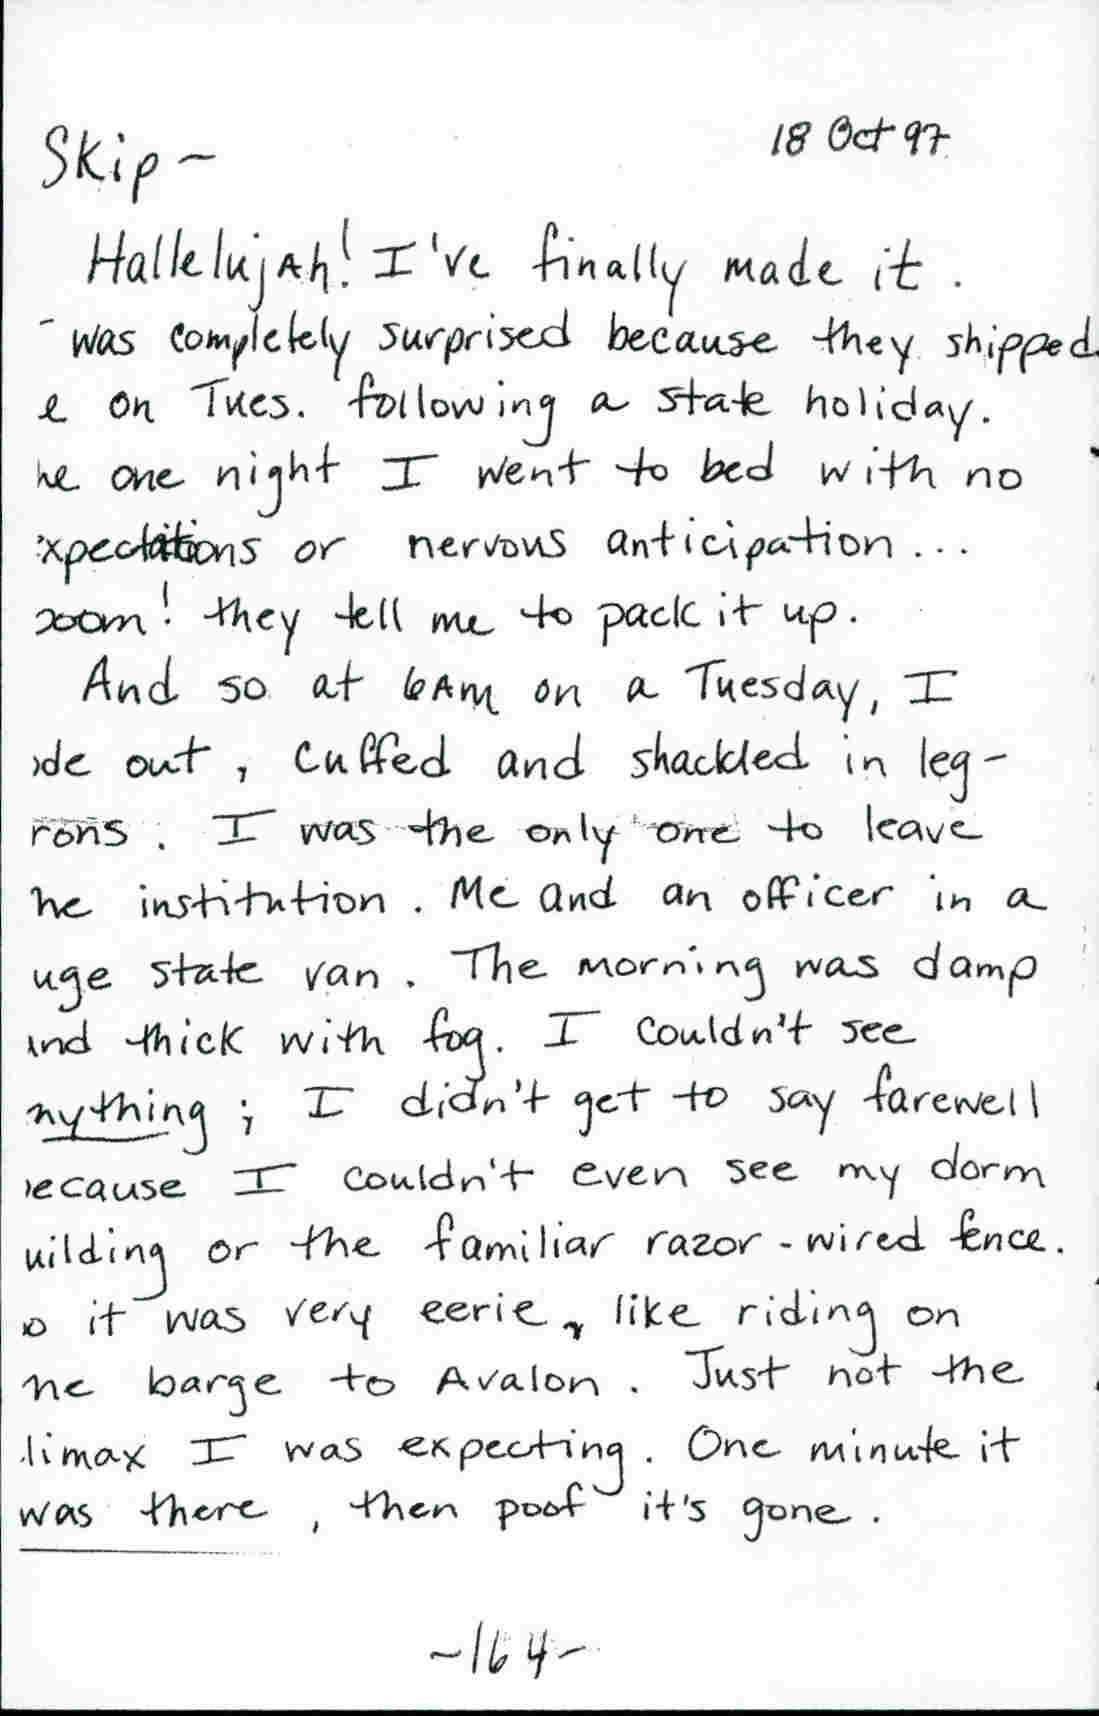 18 Oct 97
Skip ~
Hallelujah! I've finally made it.
was completely surprised because they shipped
e on Tues. following a state holiday.
he one night I went to bed with no
xpectations or nervous anticipation...
oom! they tell me to pack it up.
And so at 6AM on a Tuesday, I
ode out, cuffed and shackled in leg-
rons. I was the only one to leave
he institution. Me and an officer in a
uge state van. The morning was damp
and thick with fog. I couldn't see
nything; I didn't get to say farewell
ecause I couldn't even see my dorm
uilding or the familiar razor-wired fence.
o it was very eerie, like riding on
he barge to Avalon. Just not the
limax I was expecting. One minute it
was there, then poof it's gone.
~164~